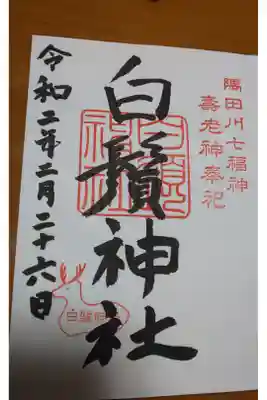 隅田川七福神
壽老神奉祀
白鬚神社
白鬚神社
令和二年二月二十六日